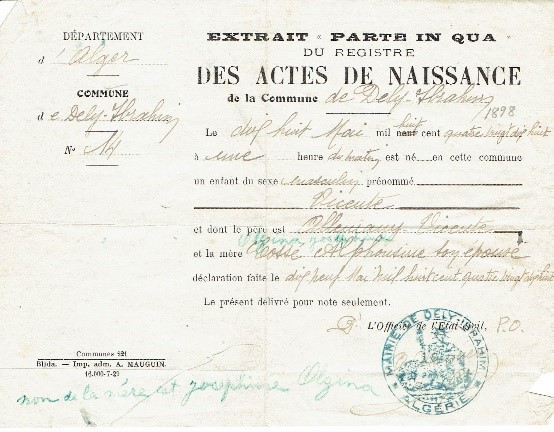 DÉPARTEMENT
d'Alger
COMMUNE
de Dely-Ibrahim
N° 14
EXTRAIT « PARTE IN QUA »
DU REGISTRE
DES ACTES DE NAISSANCE
de la Commune de Dely-Ibrahim
1898
Le dix huit Mai mil neuf huit cent quatre vingt dix huit
à une heure du matin est né en cette commune
un enfant du sexe masculin prénommé
Vicente
et dont le père est Vicente
Olgina josephine
et la mère Alphonsine son épouse
déclaration faite le dix neuf Mai mil huit cent quatre vingt dix huit
Le présent délivré pour note seulement.
L'Officier de l'Etat-Civil, P.O.
MAIRIE DE DELY-IBRAHIM
ALGÉRIE
Communes 821
Blida. — Imp. adm. A. MAUGUIN.
16.000-7-29
nom de la mère est josephine Olgina